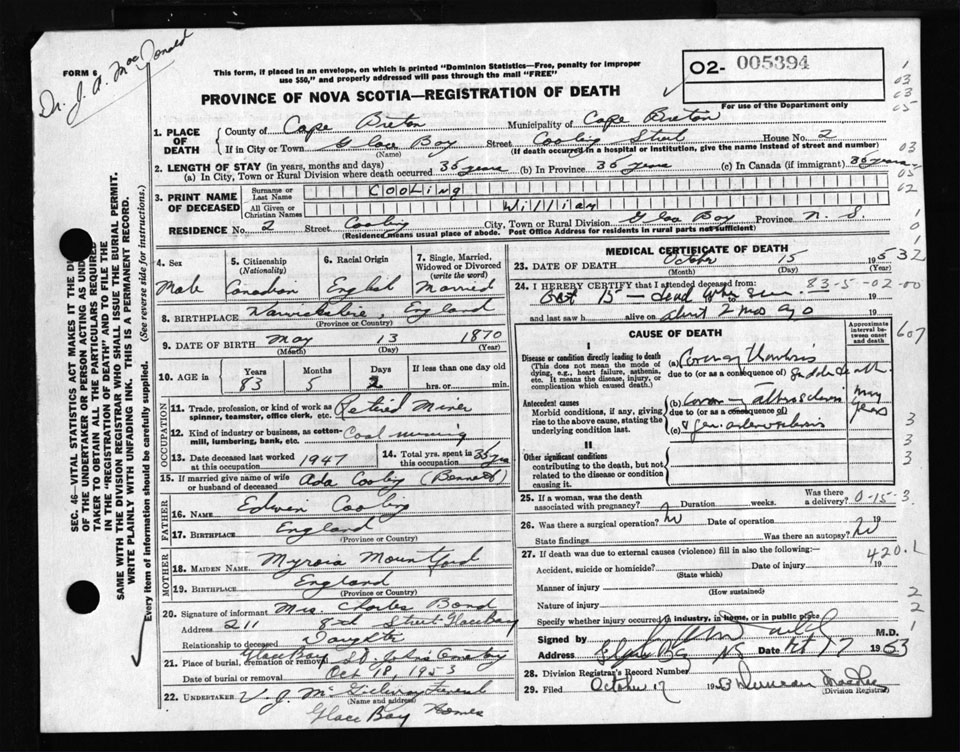 Dr. J. A. MacDonald
FORM 6
This form, if placed in an envelope, on which is printed "Dominion Statistics—Free, penalty for improper
use $50," and properly addressed will pass through the mail "FREE"
O2- 005394
For use of the Department only
PROVINCE OF NOVA SCOTIA—REGISTRATION OF DEATH
SEC. 46—VITAL STATISTICS ACT MAKES IT THE
OF THE UNDERTAKER OR PERSON ACTING AS UND
TAKER TO OBTAIN ALL THE PARTICULARS REQUIRED
IN THE "REGISTRATION OF DEATH" AND TO FILE THE
SAME WITH THE DIVISION REGISTRAR WHO SHALL ISSUE THE BURIAL PERMIT.
WRITE PLAINLY WITH UNFADING INK. THIS IS A PERMANENT RECORD.
Every item of information should be carefully supplied. (See reverse side for instructions.)
1. PLACE OF DEATH
County of Cape Breton Municipality of Cape Breton
If in City or Town Glace Bay Street Cooling Street House No. 2
(Name) (If death occurred in a hospital or institution, give the name instead of street and number)
2. LENGTH OF STAY (in years, months and days)
(a) In City, Town or Rural Division where death occurred 36 years (b) In Province 36 years (c) In Canada (if immigrant) 36 years
3. PRINT NAME OF DECEASED
Surname or Last Name COOLing
All Given or Christian Names William
RESIDENCE No. 2 Street Cooling City, Town or Rural Division Glace Bay Province N. S.
(Residence means usual place of abode. Post Office Address for residents in rural parts not sufficient)
4. Sex 5. Citizenship (Nationality) 6. Racial Origin 7. Single, Married, Widowed or Divorced (write the word)
Male Canadian English Married
8. BIRTHPLACE Warwickshire, England
(Province or Country)
9. DATE OF BIRTH May 13 1870
(Month) (Day) (Year)
10. AGE in Years Months Days If less than one day old
83 5 2 hrs. or min.
OCCUPATION
11. Trade, profession, or kind of work as spinner, teamster, office clerk, etc. Retired Miner
12. Kind of industry or business, as cotton-mill, lumbering, bank, etc. Coal mining
13. Date deceased last worked at this occupation 1947
14. Total yrs. spent in this occupation 35 yrs
15. If married give name of wife or husband of deceased Ada Cooling (Bennett)
FATHER
16. NAME Edwin Cooling
17. BIRTHPLACE England
(Province or Country)
MOTHER
18. MAIDEN NAME Mountford
19. BIRTHPLACE England
(Province or Country)
20. Signature of informant Mrs. Charles Bond
Address 211 8th Street Glace Bay
Relationship to deceased Daughter
21. Place of burial, cremation or removal Glace Bay St. John's
Date of burial or removal Oct 18, 1953
22. UNDERTAKER V. J. McGillivray Funeral
(Name and address)
Glace Bay Homes
MEDICAL CERTIFICATE OF DEATH
23. DATE OF DEATH October 15 1953
(Month) (Day) (Year)
24. I HEREBY CERTIFY that I attended deceased from: 83-5-02-00
Oct 15 — dead when seen 19
and last saw h alive on about 2 mos ago 19
CAUSE OF DEATH
Approximate interval between onset and death
I
Disease or condition directly leading to death
(This does not mean the mode of dying, e.g., heart failure, asthenia, etc. It means the disease, injury, or complication which caused death.)
(a) Coronary Thrombosis
due to (or as a consequence of) sudden death
Antecedent causes
Morbid conditions, if any, giving rise to the above cause, stating the underlying condition last.
(b) Coronary atherosclerosis many years
due to (or as a consequence of)
(c) & gen. arteriosclerosis
II
Other significant conditions
contributing to the death, but not related to the disease or condition causing it.
25. If a woman, was the death associated with pregnancy? Duration weeks. Was there a delivery? 0-15-3
26. Was there a surgical operation? No Date of operation 19
State findings Was there an autopsy? No
27. If death was due to external causes (violence) fill in also the following:— 420.1
Accident, suicide or homicide? Date of injury 19
(State which)
Manner of injury
(How sustained)
Nature of injury
Specify whether injury occurred in industry, in home, or in public place
Signed by M.D.
Address N.S. Date Oct 17 1953
28. Division Registrar's Record Number
29. Filed October 17 1953 Duncan
(Division Registrar)
607